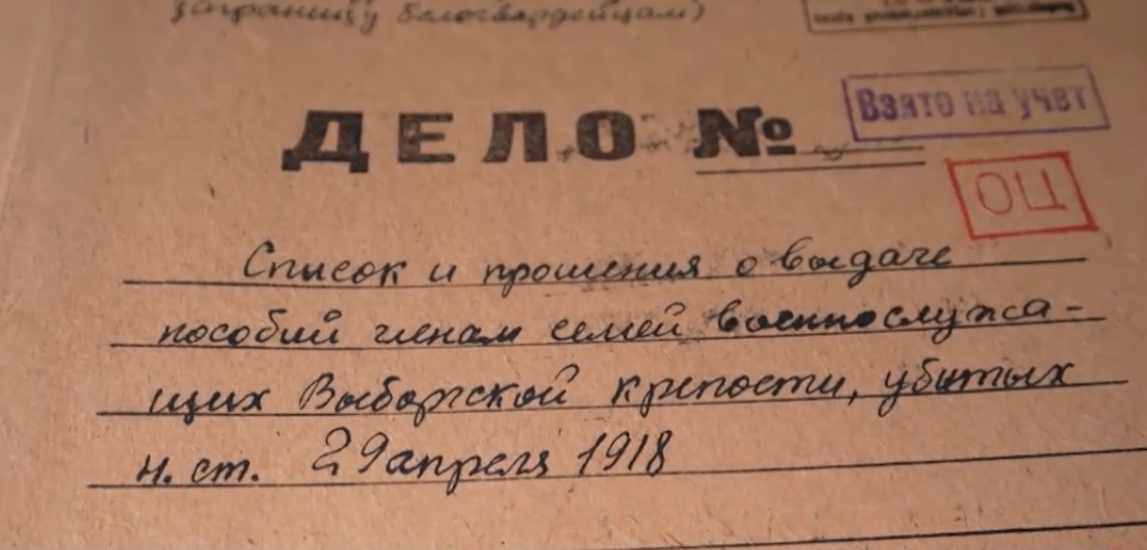 заграницу белогвардейцам)
ДЕЛО №
Взято на учет
ОЦ
Список и прошения о выдаче
пособий членам семей военнослужа-
щих Выборгской крепости, убитых
н. ст. 29 апреля 1918